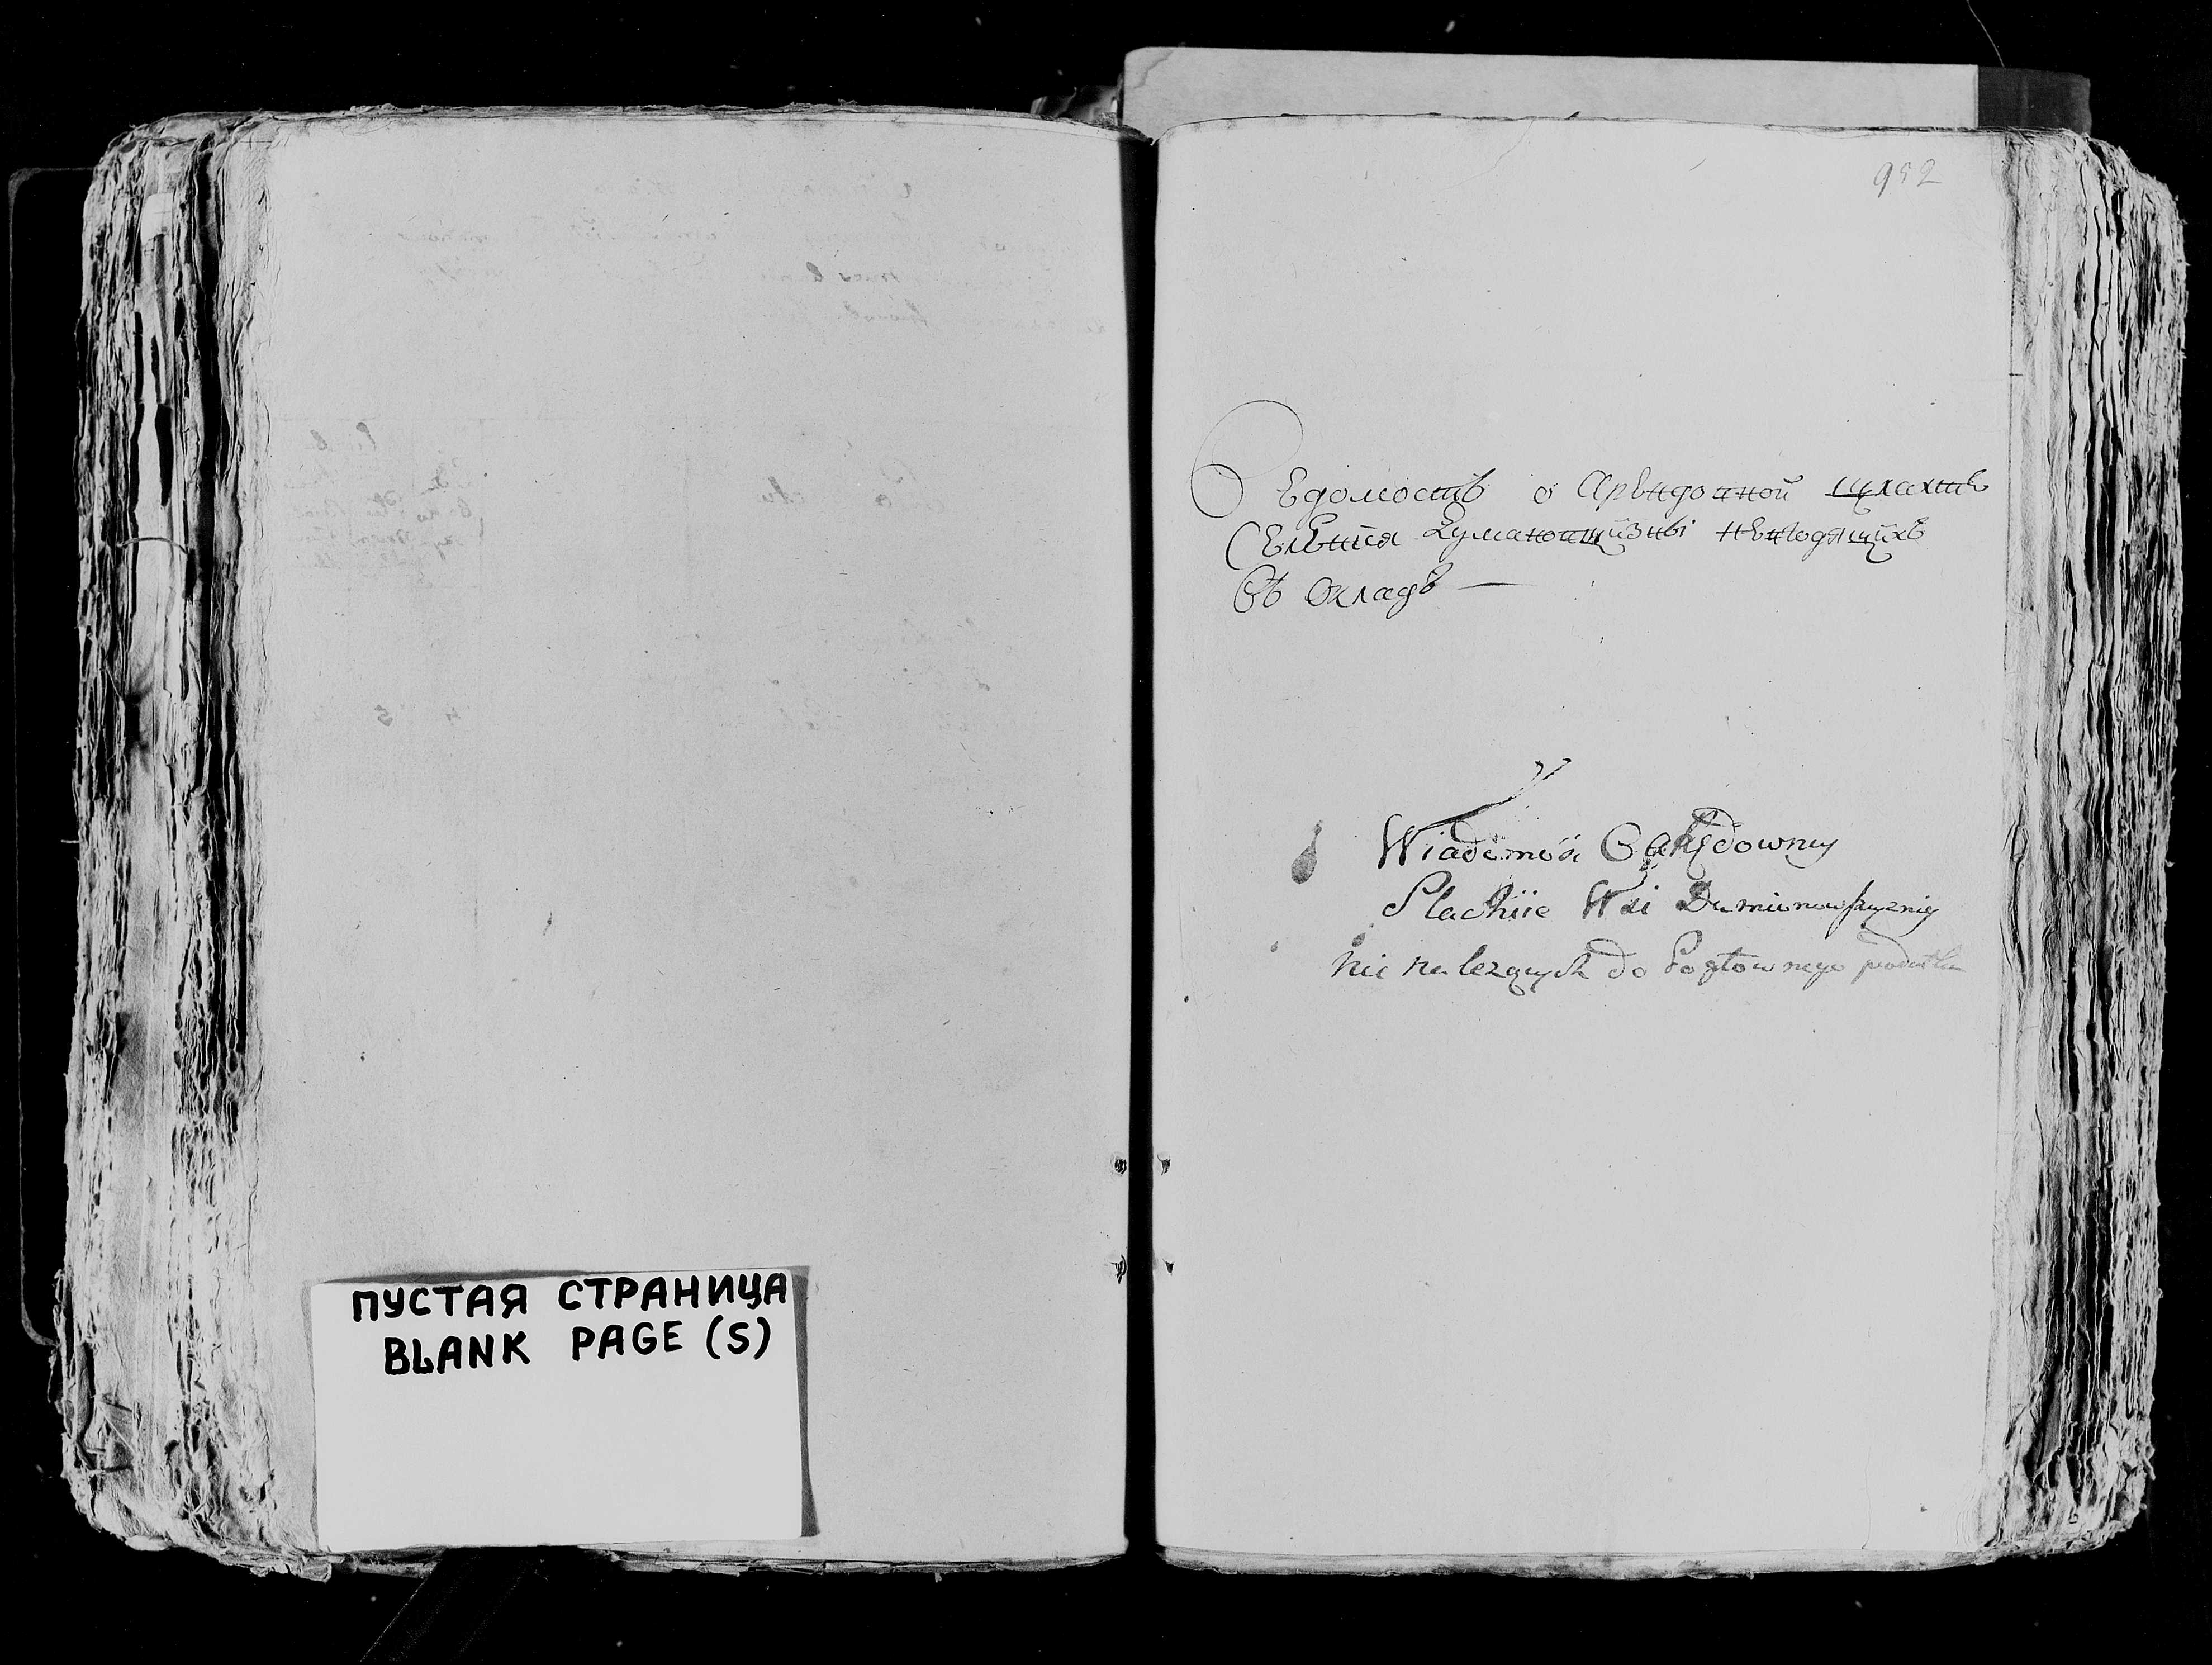 ПУСТАЯ СТРАНИЦА
BLANK PAGE (S)
952
Ведомость о Арендонной шлахтѣ
Селения Думановщизны невходящихъ
Въ Окладъ —
Wiadomość O Aręndowny
Slachcie Wsi Dumanowszczyzny
nie należących do Pogłownego podatku